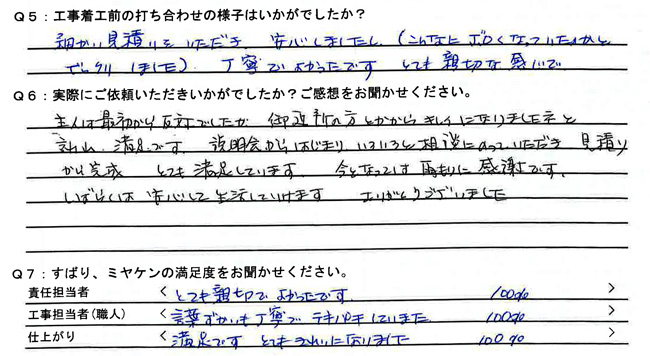 Q5：工事着工前の打ち合わせの様子はいかがでしたか？
細かい見積りをいただき 安心しましたし、（こんなにボロくなっていたのかと
ビックリしました）。丁寧でよかったです とても親切な感じで
Q6：実際にご依頼いただきいかがでしたか？ご感想をお聞かせください。
主人は最初から反対でしたが 御近所の方とかからキレイになりましたネと
言われ 満足です。説明会からはじまり いろいろと相談にのっていただき 見積り
から完成 とても満足しています。 今となっては 両親に感謝です。
しばらくは 安心して生活していけます ありがとうございました
Q7：ずばり、ミヤケンの満足度をお聞かせください。
責任担当者 < とても親切でよかったです。 100% >
工事担当者（職人） < 言葉づかいも丁寧で テキパキしていました 100% >
仕上がり < 満足です とてもきれいになりました 100% >